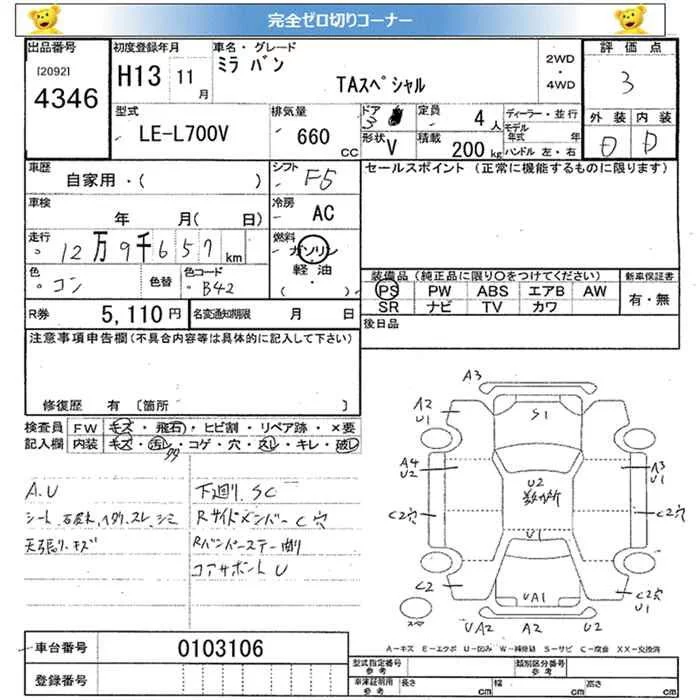 完全ゼロ切りコーナー
出品番号 初度登録年月 車名・グレード 評価点
[2092] 4346
H13 11月
ミラ バン
TAスペシャル
2WD・4WD
3
型式 LE-L700V
排気量 660 CC
ドア 3
形状 V
定員 4人
積載 200kg
ディーラー・並行
モデル年式 年
ハンドル 左・右
外装 内装
D D
車歴 自家用・( )
シフト F5
セールスポイント (正常に機能するものに限ります)
車検 年 月( 日)
冷房 AC
走行 12万9千657km
燃料 ガソリン 軽油 ( )
色 コン 色替 色コード B42
装備品 (純正品に限り○をつけてください) 新車保証書
PS PW ABS エアB AW
SR ナビ TV カワ
有・無
R券 5,110円 名変通知期限 月 日
後日品
注意事項申告欄(不具合内容等は具体的に記入して下さい)
修復歴 有 〔箇所 〕
検査員 FW キズ・飛石・ヒビ割・リペア跡・×要
記入欄 内装 キズ・汚レ・コゲ・穴・スレ・キレ・破レ
A.U
天張り.キズ
下廻り.SC
Rサイドメンバー C穴
コアサポート U
A3
A2 U1
S1
A4 U2
U2 数ヶ所
A3 U1
C2穴
C2穴
U1
C2
UA1
C2穴 U1
UA2 A2 U2
A-キズ E-エクボ U-凹み W-補修跡 S-サビ C-腐食 XX-交換済
車台番号 0103106
登録番号
型式指定番号 参考 類別区分番号 参考
車庫証明用 参考 長さ cm 幅 cm 高さ cm